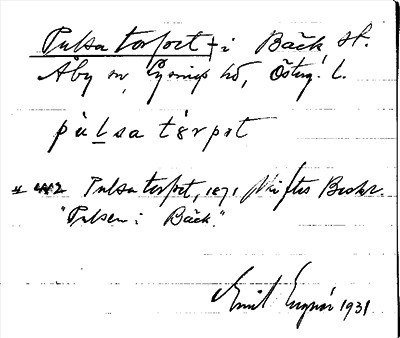 Pulsa torpet † i Bäck st.
Åby sn, Lysings hd, Österg. l.
pu̇lsa tȯrpət
Pulsa torpet, 1871 Skiftes Beskr.
"Pulsen i Bäck."
Emil 1931